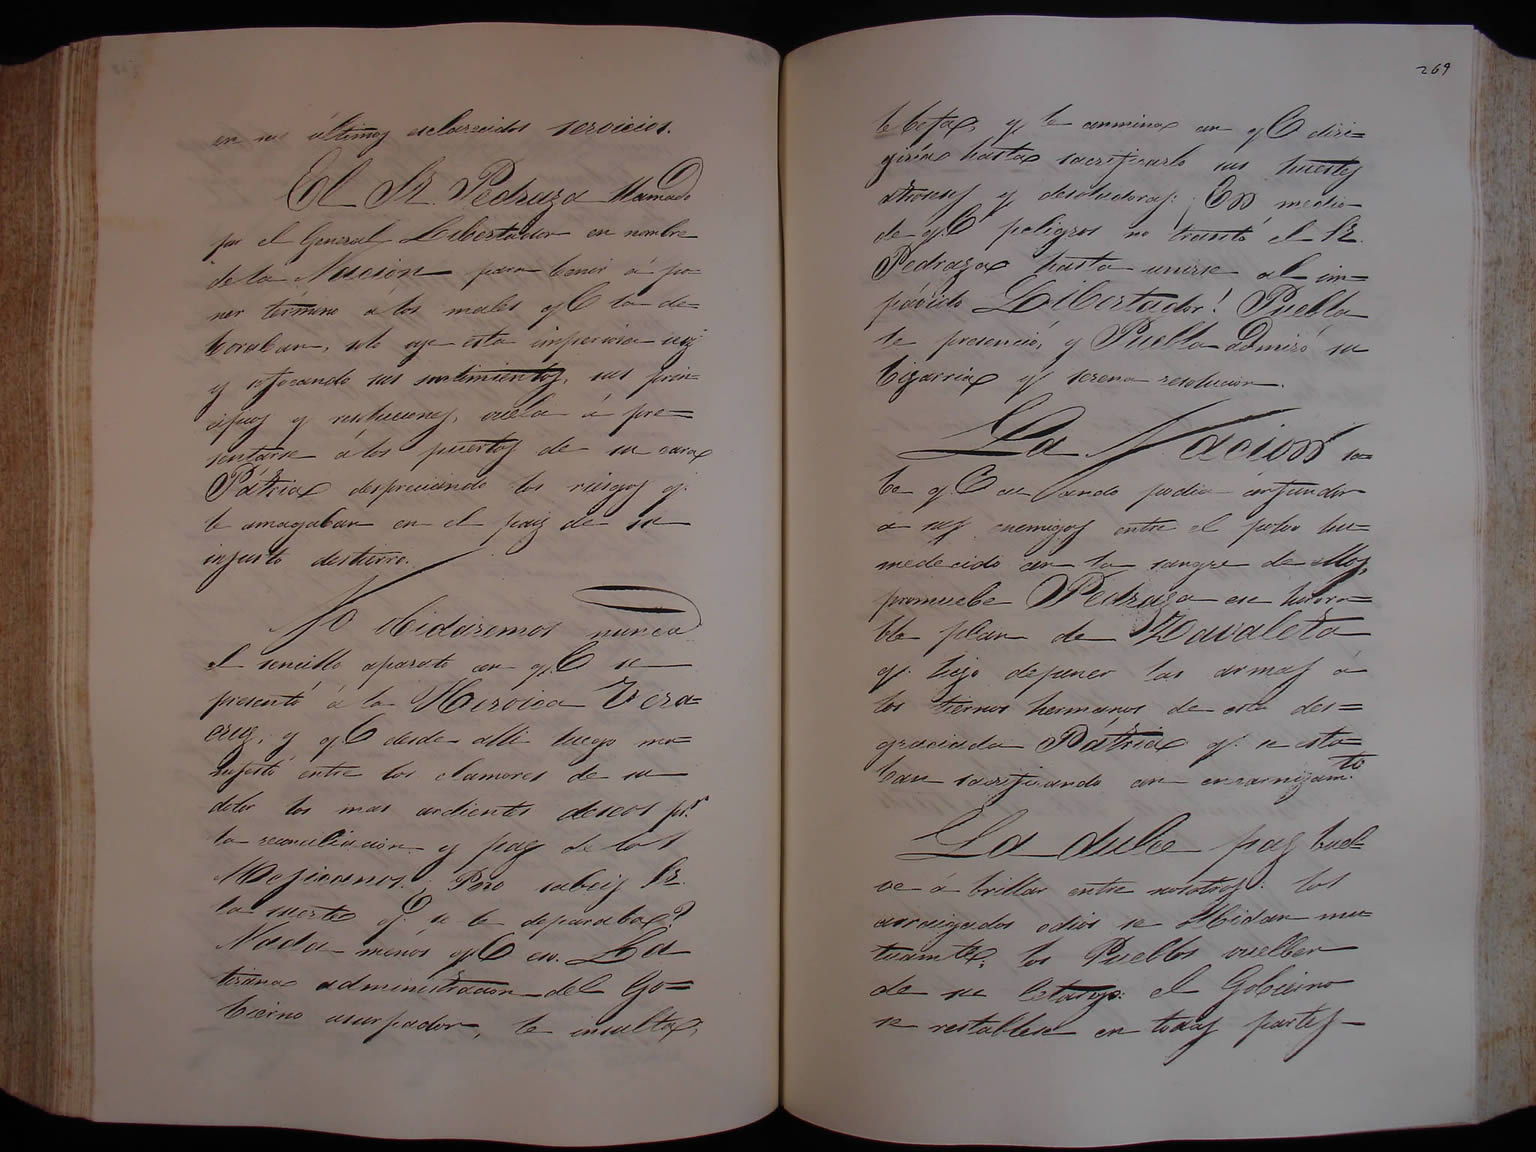 en sus últimos esclarecidos servicios.
El Sr. Pedraza llamado
por el General Libertador en nombre
de la Nacion para benir á po=
ner termino a los males q.e la de=
boraban, solo oye esta imperiosa voz
y sofocando sus sentimientos, sus prin=
cipios y resoluciones, vuela á pre=
sentarse á los puertos de su cara
Pátria despreciando los riesgos q.
le amagaban en el paiz de su
injusto destierro.
No olbidaremos nunca
el sencillo aparato con q.e se
presentó á la Heroica Vera=
cruz, y q.e desde alli luego ma=
nifestó entre los clamores de su
dolor los mas ardientes deseos por
la reconciliacion y paz de los
Mejicanos. ¿Pero sabeis Sr.
la suerte q. se le deparaba?
Nada menos q.e en. La
tirana administracion del Go=
bierno usurpador, le insulta,
269
le befa, y le conmina con q.e diri=
girá hasta sacrificarlo sus huestes
atroces y desoladoras: ¡En medio
de q.e peligros no transitó el Sr.
Pedraza hasta unirse al im=
pávido Libertador! Puebla
le presenció, y Puebla admiró su
bizarria y serena resolucion.
La Nacion sa=
be q.e cuando podia confundir
á sus enemigos entre el polvo hu=
medecido con la sangre de ellos,
promuebe Pedraza el honra=
ble plan de Zavaleta
q. hizo deponer las armas á
los tiernos hermanos de esta des=
graciada Pátria q. se esta=
ban sacrificando con encarnizam.to
La dulce paz buel=
ve á brillar entre nosotros: los
arraigados odios se olbidan mu=
tuamte.: los Pueblos vuelben
de su letargo: el Gobierno
se restablese en todas partes